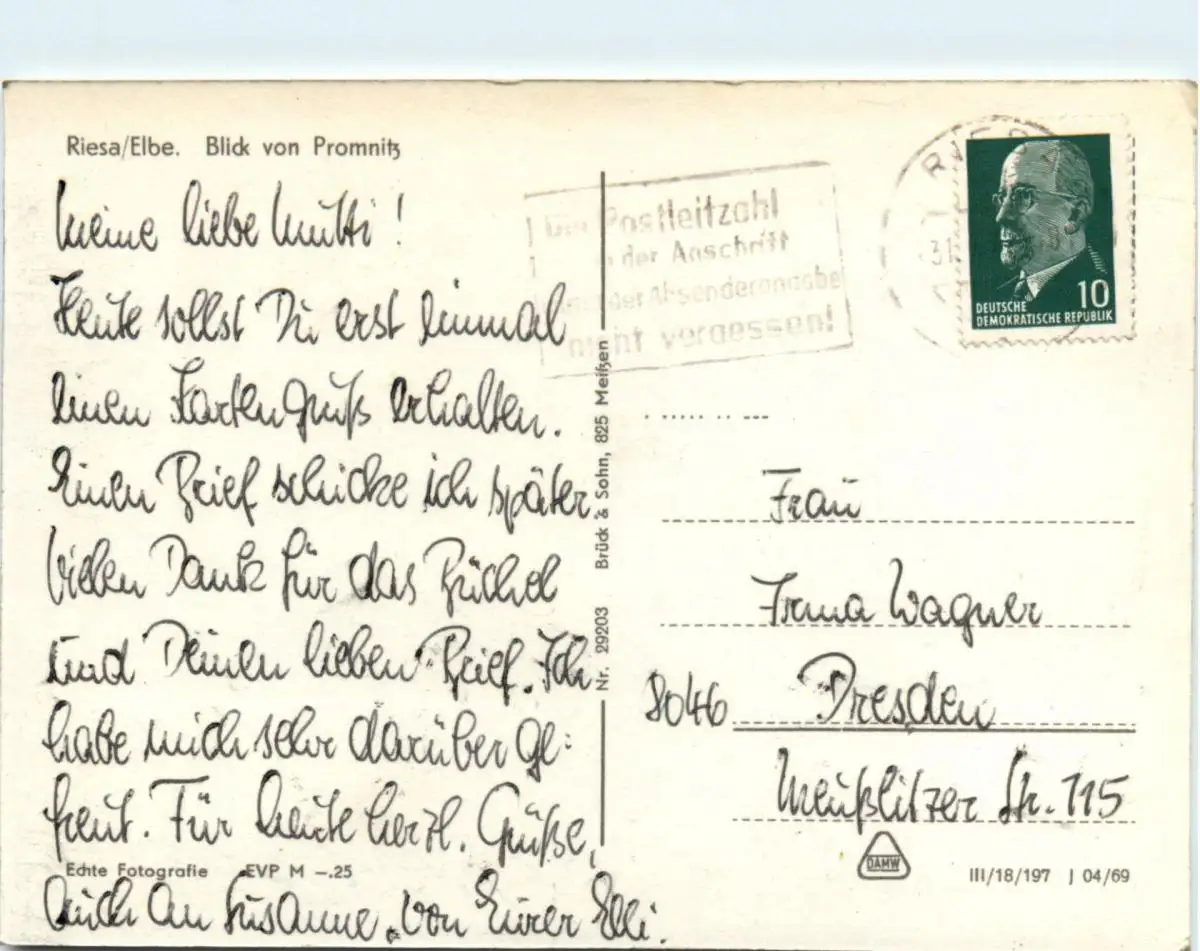 Riesa/Elbe. Blick von Promnitz
Meine liebe Mutti!
Heute sollst Du erst einmal
einen Kartengruß erhalten.
Einen Brief schicke ich später
Vielen Dank für das Büchel
und Deinen lieben Brief. Ich
habe mich sehr darüber ge-
freut. Für heute herzl. Grüße,
Echte Fotografie EVP M –.25
auch an Susanne, von Eurer Elli.
Nr. 29203 Brück & Sohn, 825 Meißen
Postleitzahl
der Anschrift
der Absenderangabe
nicht vergessen!
10
DEUTSCHE
DEMOKRATISCHE REPUBLIK
Frau
Irma Wagner
8046 Dresden
Meußlitzer Str. 115
DAMW
III/18/197 J 04/69